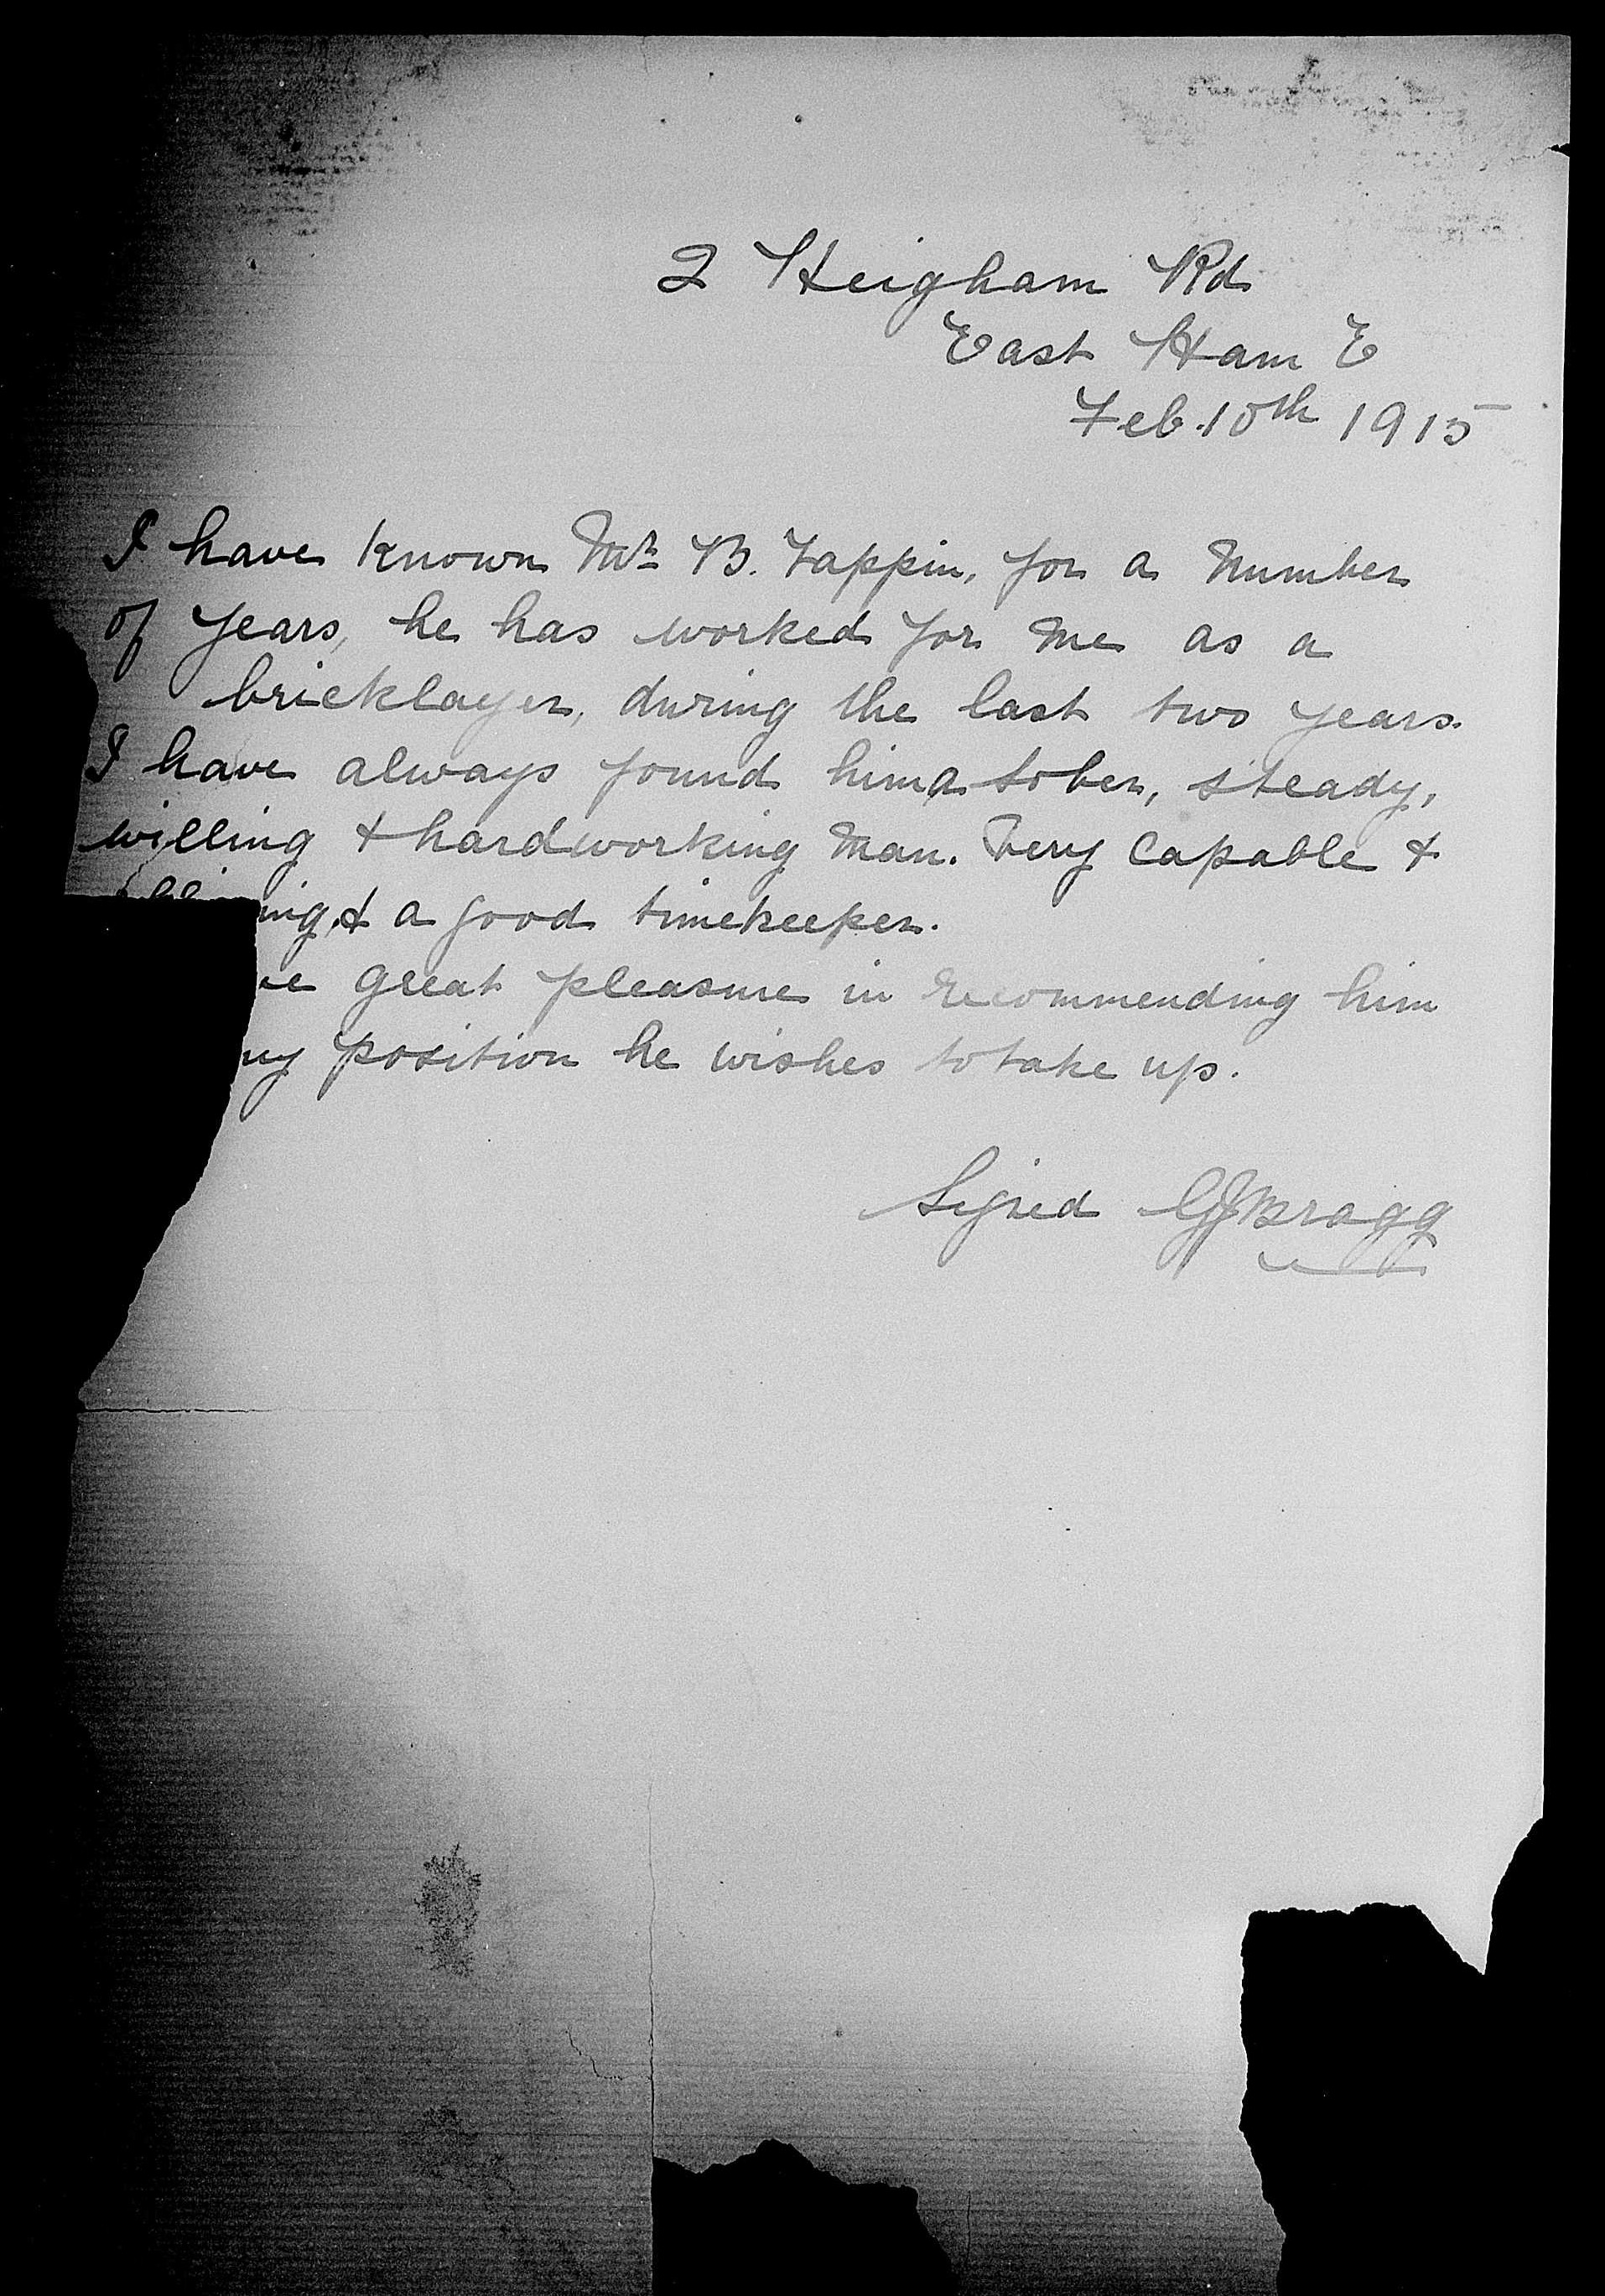 2 Heigham Rd
East Ham E
Feb. 10th 1915
I have known Mr B. Tappin, for a number
of years, he has worked for me as a
bricklayer, during the last two years.
I have always found him a sober, steady,
willing & hardworking man. Very capable &
& a good timekeeper.
great pleasure in recommending him
position he wishes to take up.
Signed GJBragg